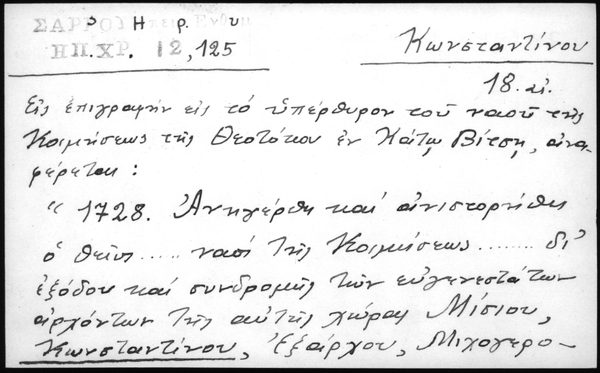 ΣΑΡΡΟΣ Ηπειρ. Ενθυμ.
ΗΠ.ΧΡ. 12,125
Κωνσταντίνου
18. αἰ.
Εἰς ἐπιγραφὴν εἰς τὸ ὑπέρθυρον τοῦ ναοῦ τῆς
Κοιμήσεως τῆς Θεοτόκου ἐν Κάτῳ Βίτσῃ, ἀνα-
φέρεται :
"1728. Ἀνηγέρθη καὶ ἀνιστορήθη
ὁ θεῖος ..... ναός τῆς Κοιμήσεως ....... δι'
ἐξόδου καὶ συνδρομῆς τῶν εὐγενεστάτων
ἀρχόντων τῆς αὐτῆς χώρας Μίσιου,
Κωνσταντίνου, Ἐξάρχου, Μιχογερο-